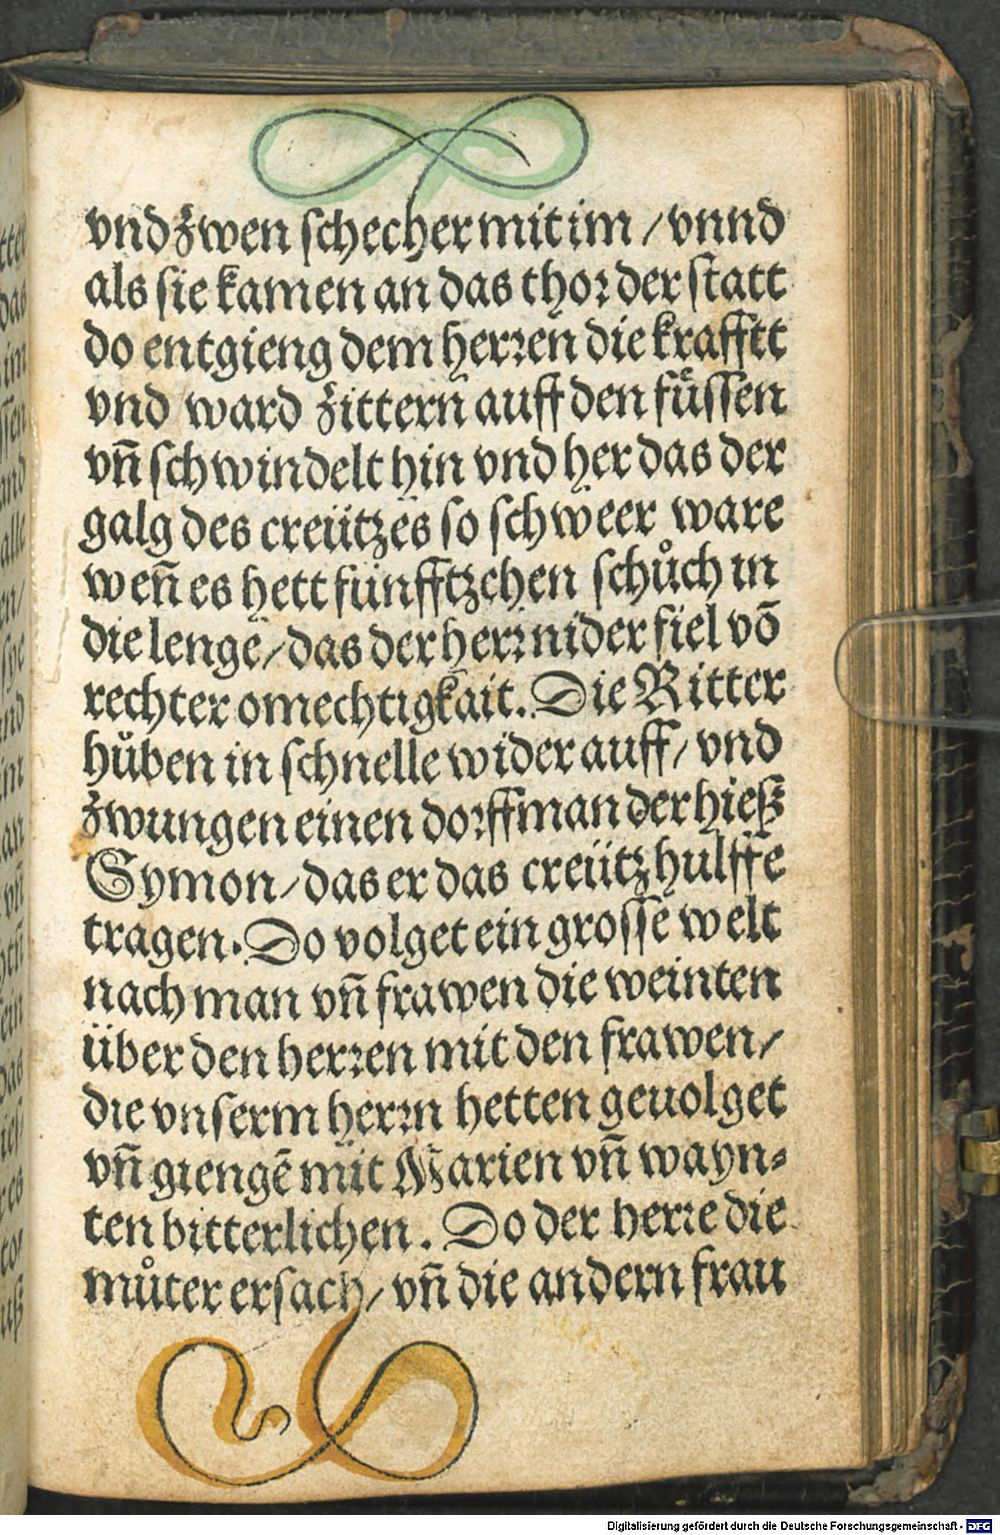 vnd zwen schecher mit im / vnnd
als sie kamen an das thor der statt
do entgieng dem herren die krafftt
vnd ward zittern auff den fuͤssen
vn̄ schwindelt hin vnd her das der
galg des creützes so schweer ware
wen̄ es hett fünfftzehen schuͦch in
die lenge / das der herr nider fiel vō
rechter omechtigkait. Die Ritter
huͦben in schnelle wider auff / vnd
zwungen einen dorffman der hieß
Symon / das er das creütz hulffe
tragen. Do volget ein grosse welt
nach man vn̄ frawen die weinten
über den herren mit den frawen /
die vnserm herrn hetten geuolget
vn̄ giengē mit Marien vn̄ wayn-
ten bitterlichen. Do der herre die
muͦter ersach / vn̄ die andern frau
Digitalisierung gefördert durch die Deutsche Forschungsgemeinschaft - DFG